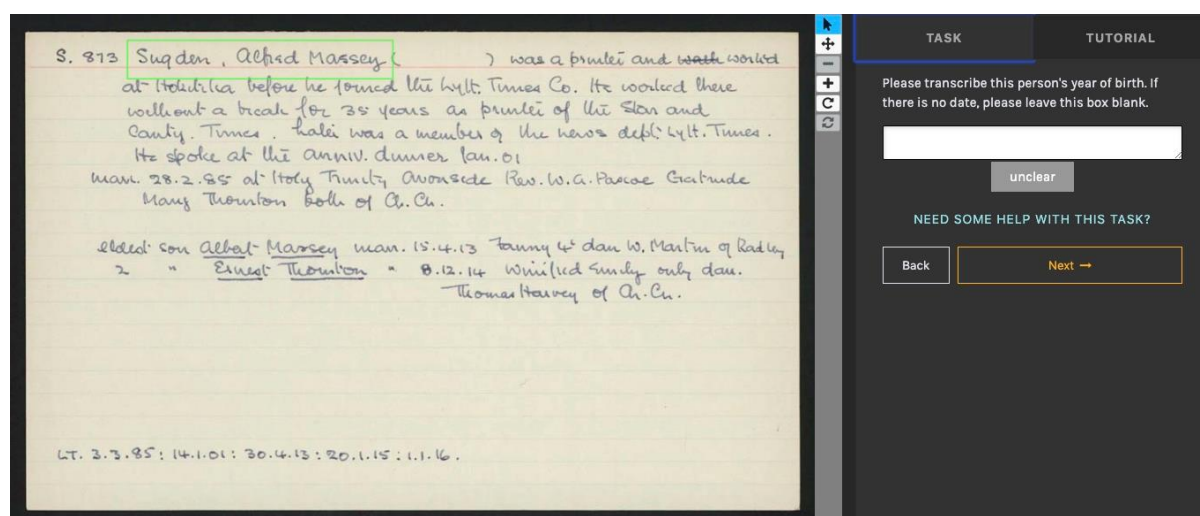 S. 873 Sugden, Alfred Massey ( ) was a printer and worked
at Hokitika before he joined the Lytt. Times Co. He worked there
without a break for 35 years as printer of the Star and
Canty. Times. Later was a member of the news dept. Lytt. Times.
He spoke at the anniv. dinner Jan. 01
marr. 28.2.85 at Holy Trinity Avonside Rev. W.A. Pascoe Gertrude
Mary Thornton both of Ch. Ch.
eldest son Albert Massey marr. 15.4.13 Fanny 4th dau W. Martin of Radley
2 " Ernest Thornton " 8.12.14 Winifred Emily only dau.
Thomas Harvey of Ch. Ch.
LT. 3.3.85: 14.1.01: 30.4.13: 20.1.15: 1.1.16.
TASK
TUTORIAL
Please transcribe this person's year of birth. If
there is no date, please leave this box blank.
unclear
NEED SOME HELP WITH THIS TASK?
Back
Next →